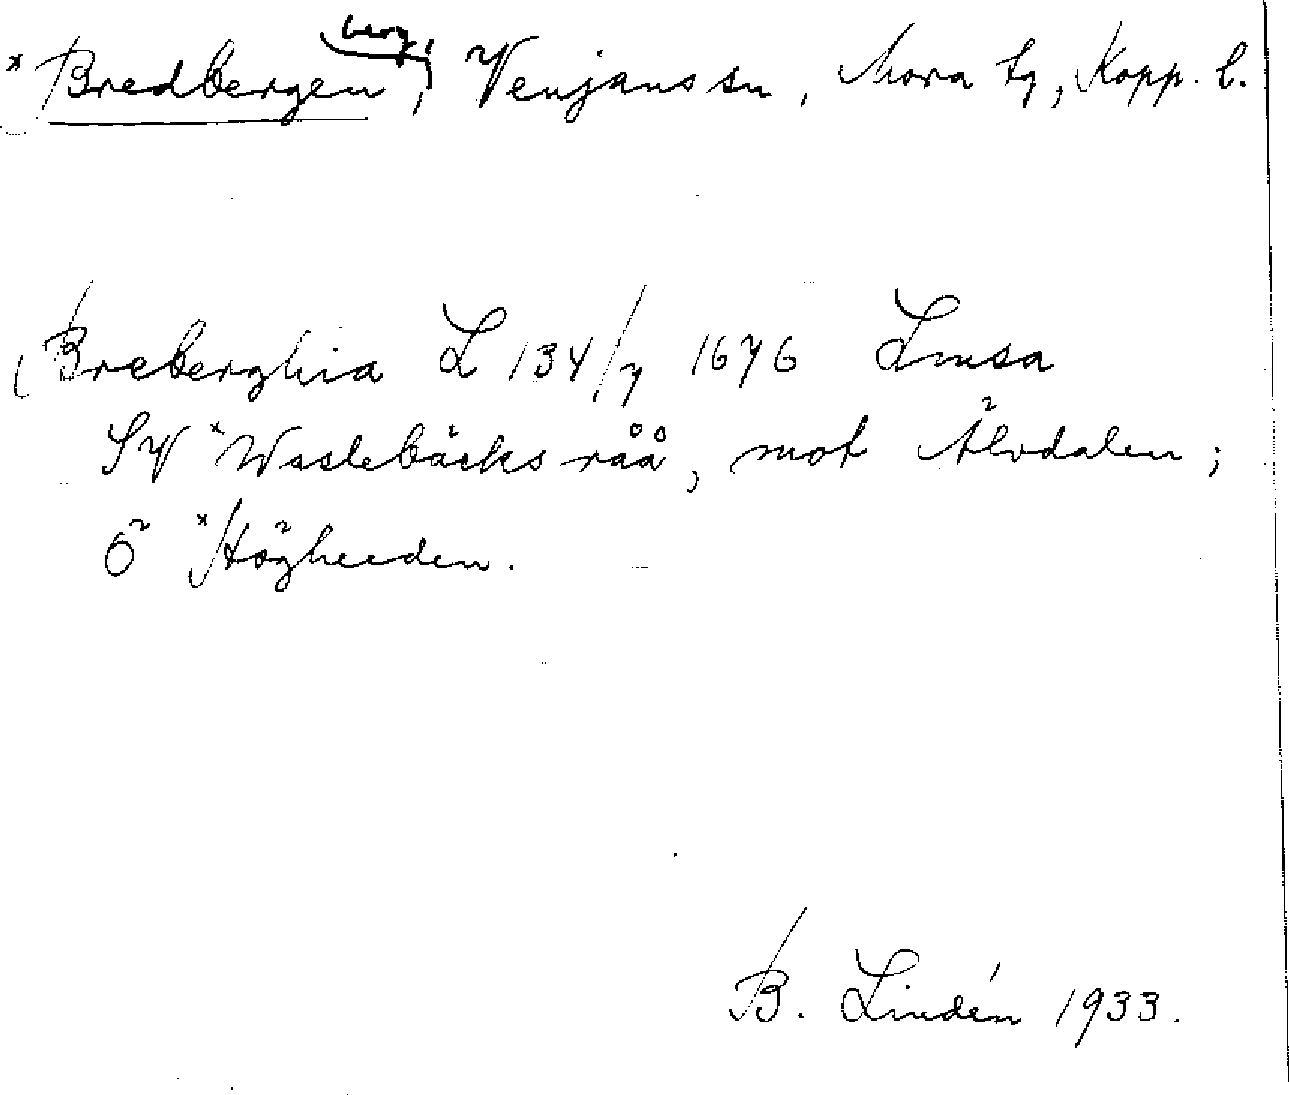 berg,
*Bredbergen, Venjans sn, Mora tg, Kopp. l.
(Breberghia L 134/7 1676 Lmsa
SV *Waslebäcks råå, mot Älvdalen;
Ö *Högheeden.
B. Lindén 1933.